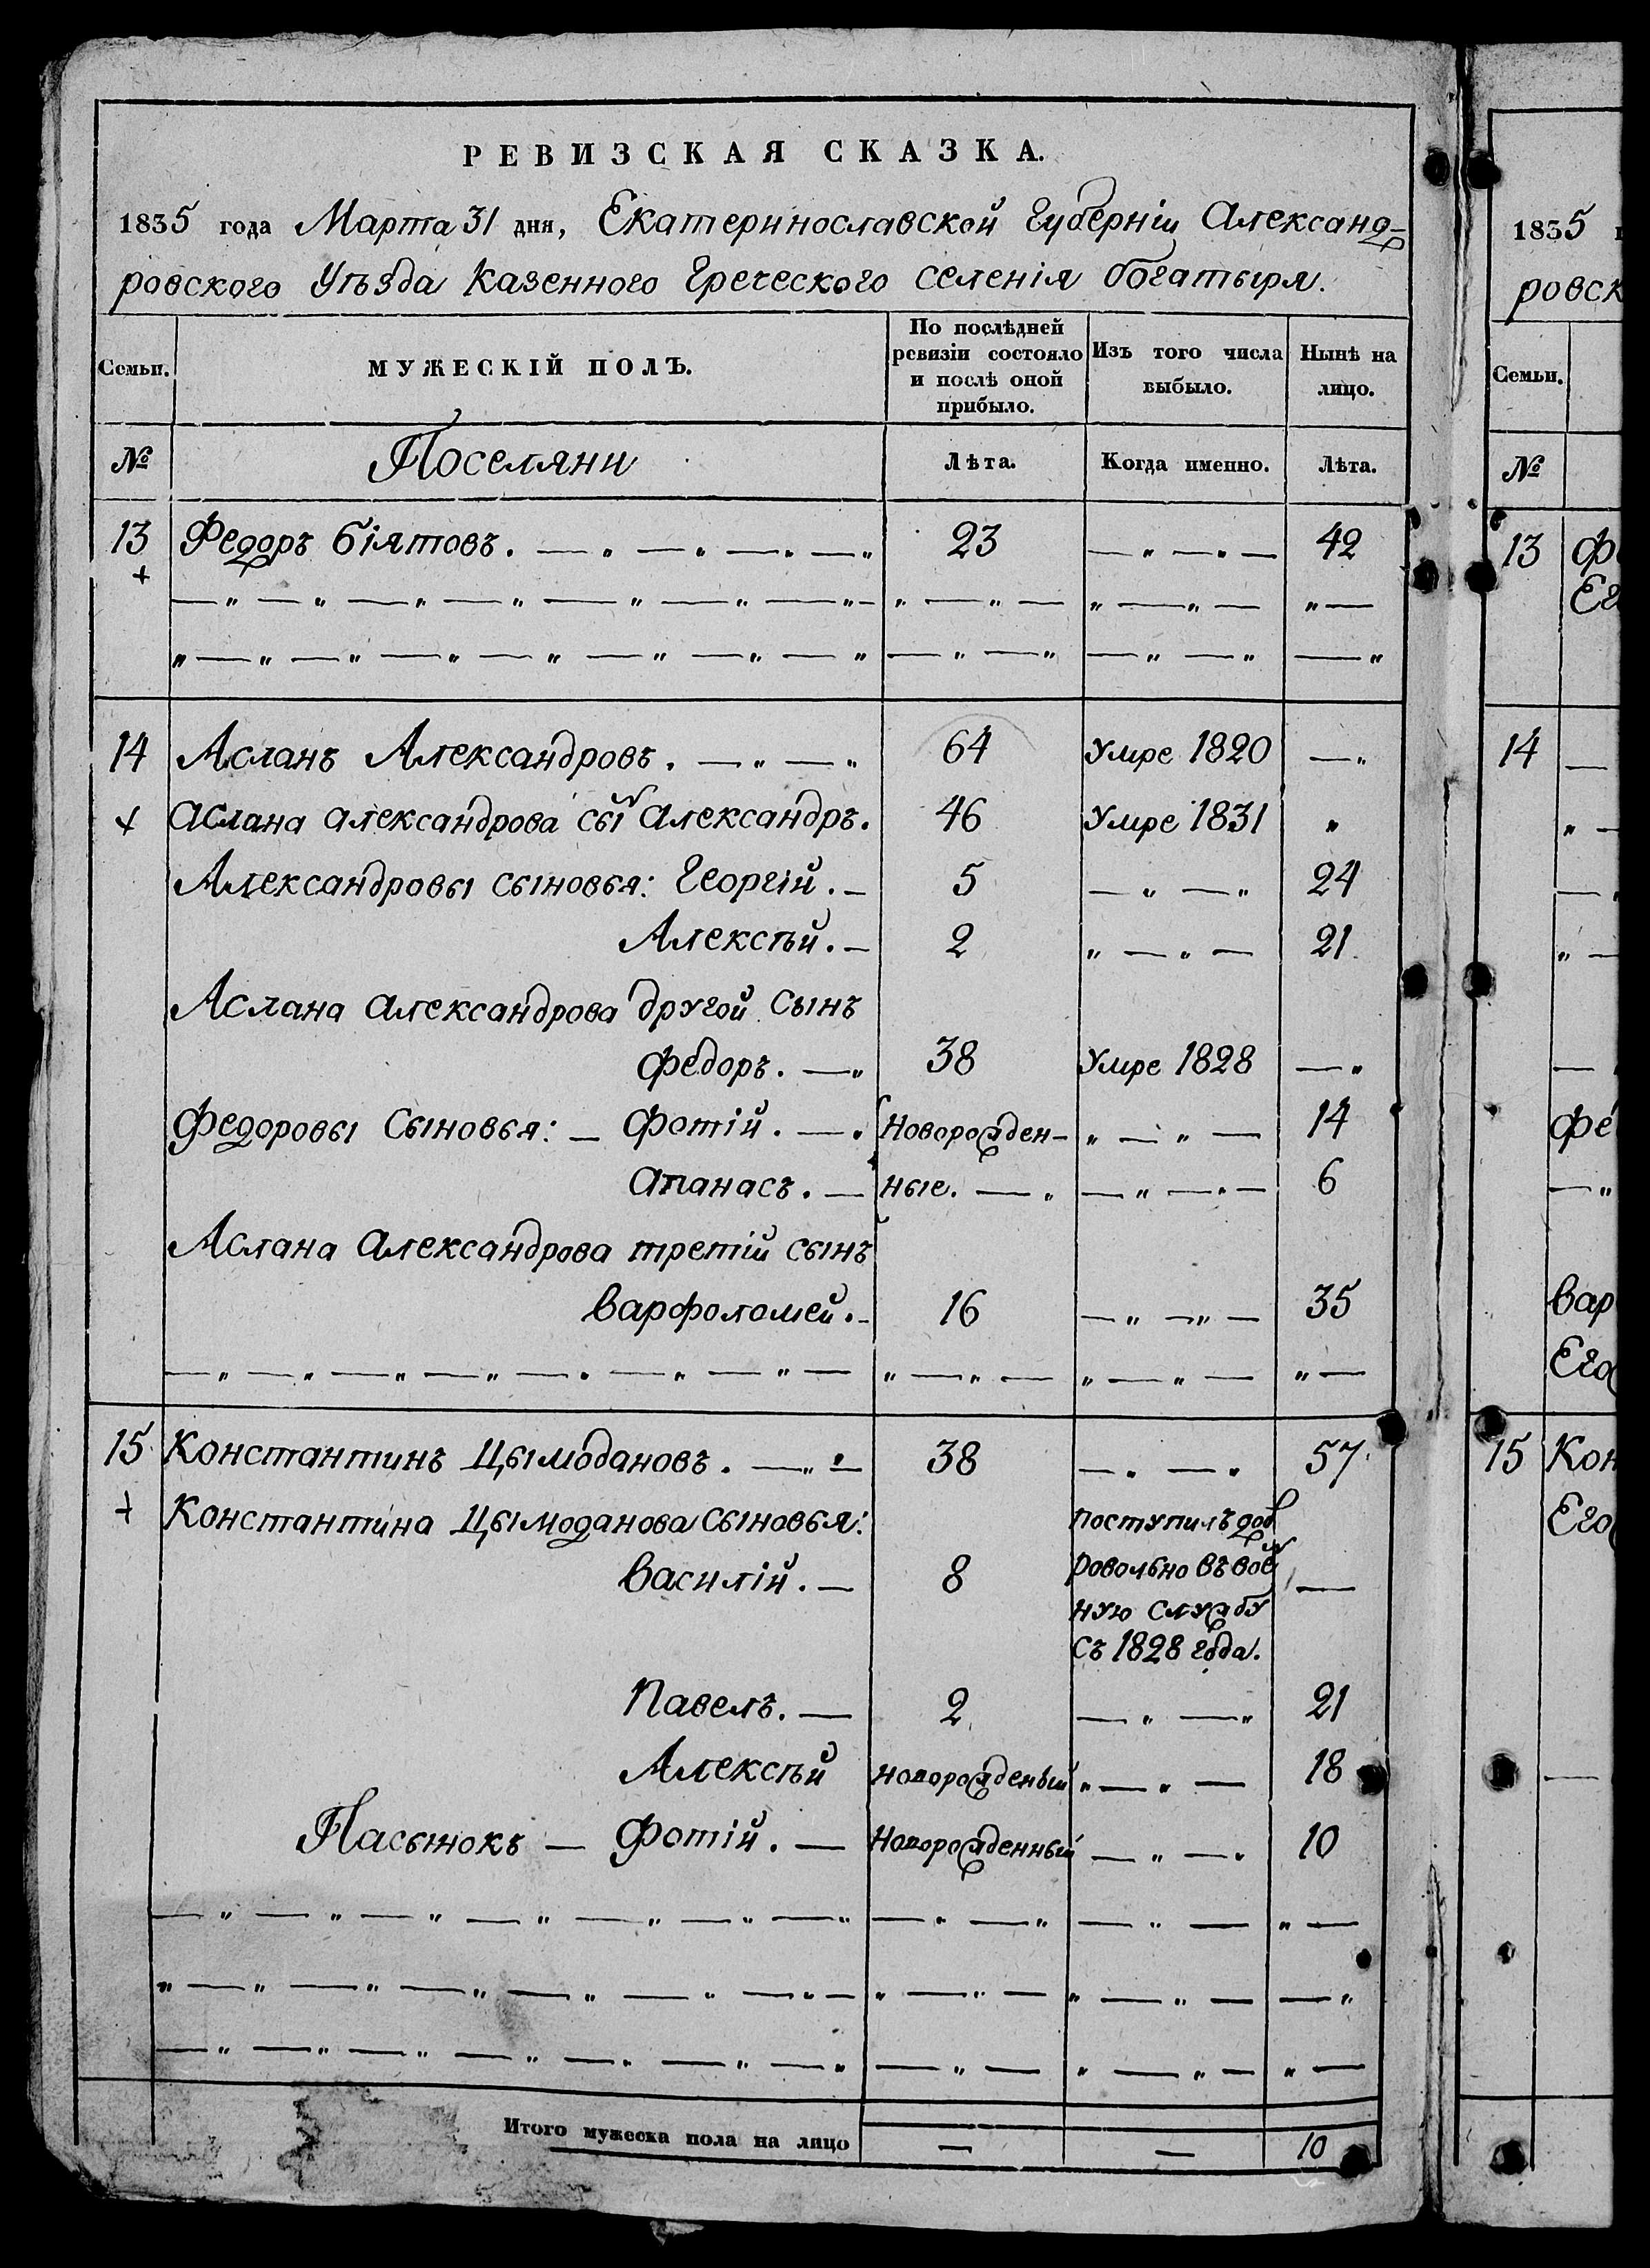 РЕВИЗСКАЯ СКАЗКА.
1835 года Марта 31 дня, Екатеринославской Губерніи Александ-
ровского Уѣзда Казенного Греческого селенія Богатыря.
Семьи. МУЖЕСКІЙ ПОЛЪ. По послѣдней ревизіи состояло и послѣ оной прибыло. Изъ того числа выбыло. Нынѣ на лицо.
№ Поселяни Лѣта. Когда именно. Лѣта.
13 Федоръ Біятовъ. 23 42
14 Асланъ Александровъ. 64 Умре 1820
Аслана Александрова сын Александръ. 46 Умре 1831
Александровы сыновья: Георгій. 5 24
Алексѣй. 2 21
Аслана Александрова другой сынъ
Федоръ. 38 Умре 1828
Федоровы Сыновья: Фотій. Новорожден- 14
Апанасъ. ные. 6
Аслана Александрова третій сынъ
Варфоломей. 16 35
15 Константинъ Цымодановъ. 38 57
Константина Цымоданова сыновья: поступилъ доб
Василій. 8 ровольно въ воен
ную службу
съ 1828 года.
Павелъ. 2 21
Алексѣй новорожденый 18
Пасынокъ Фотій. Новорожденный 10
Итого мужеска пола на лицо — — 10
1835
ровск
Семьи.
№
13 Фе
Ег
14
Фе
Вар
Его
15 Кон
Его